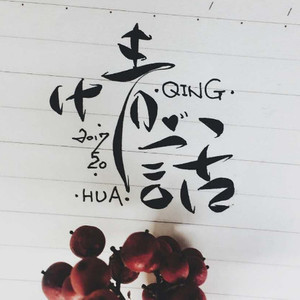 情话
·QING·
2017
5 20
·HUA·